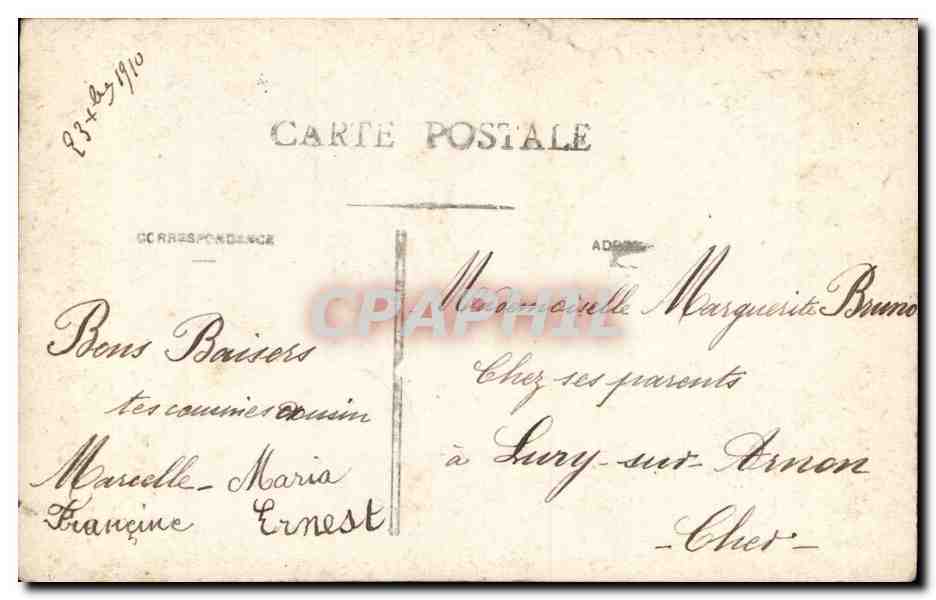 23 xbre 1910
CARTE POSTALE
CORRESPONDANCE
Bons Baisers
tes cousines cousin
Marcelle - Maria
Françine Ernest
Mademoiselle Marguerite Bruno
Chez ses parents
à Lury-sur-Arnon
- Cher -
CPAPHIL